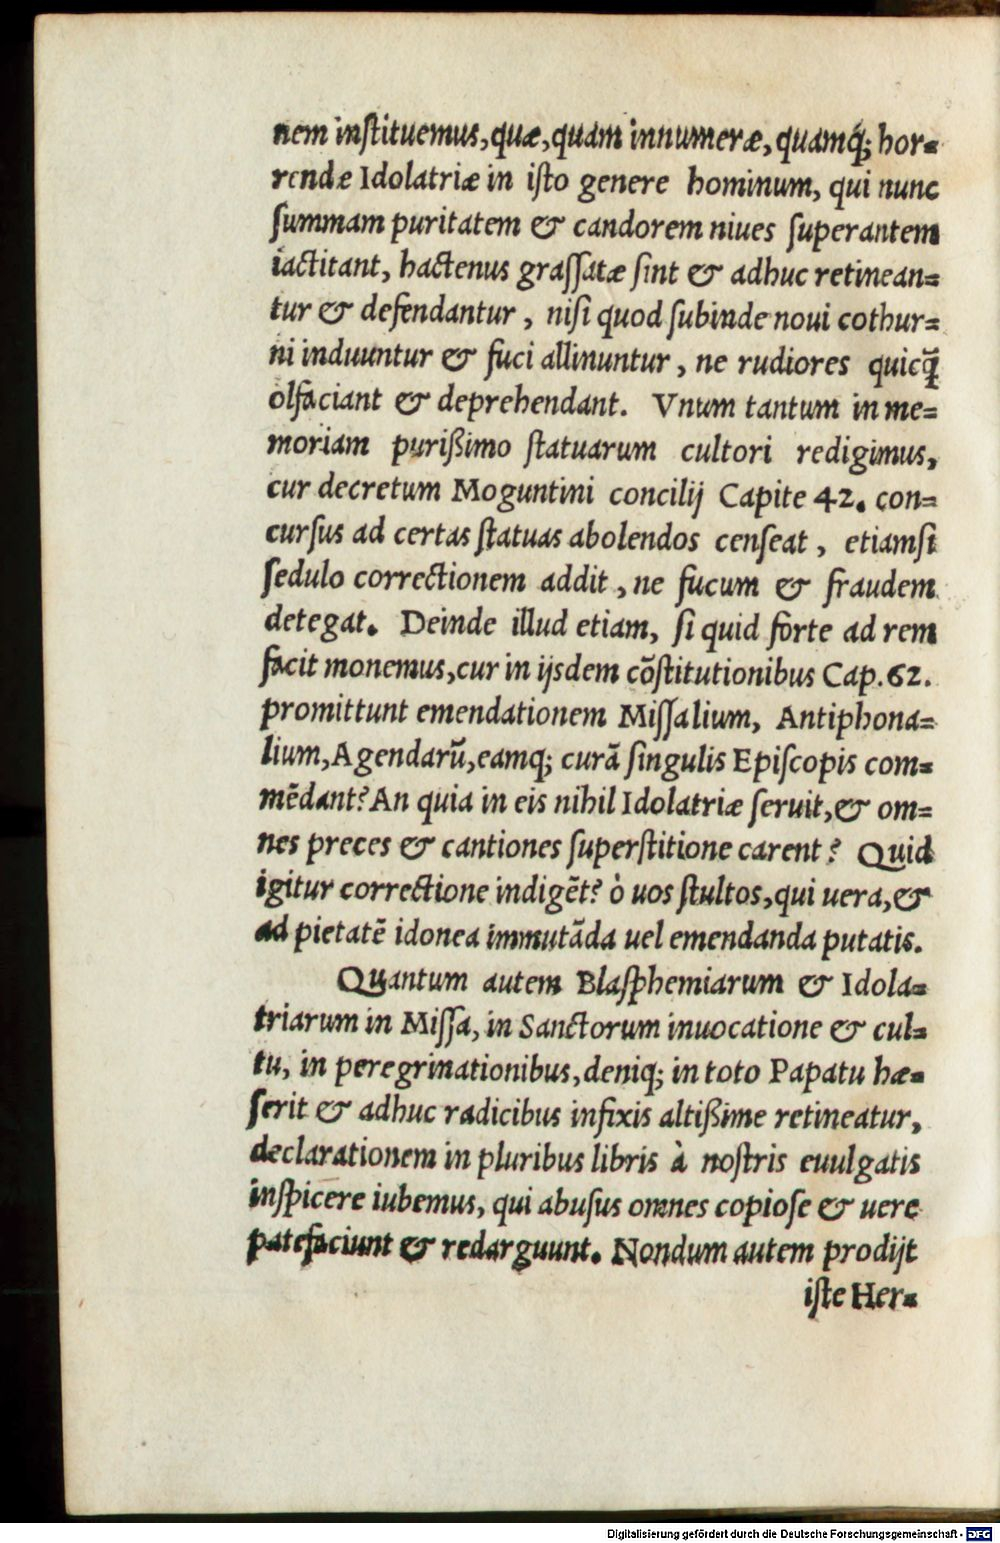 nem inſtituemus, quæ, quam innumeræ, quamq́; hor=
rendæ Idolatriæ in iſto genere hominum, qui nunc
ſummam puritatem & candorem niues ſuperantem
iactitant, hactenus graſſatæ ſint & adhuc retinean=
tur & defendantur, niſi quod ſubinde noui cothur=
ni induuntur & fuci allinuntur, ne rudiores quicq̃
olfaciant & deprehendant. Vnum tantum in me=
moriam purißimo ſtatuarum cultori redigimus,
cur decretum Moguntini concilij Capite 42. con=
curſus ad certas ſtatuas abolendos cenſeat, etiamſi
ſedulo correctionem addit, ne fucum & fraudem
detegat. Deinde illud etiam, ſi quid forte ad rem
facit monemus, cur in ijsdem cõſtitutionibus Cap. 62.
promittunt emendationem Miſſalium, Antiphona=
lium, Agendarũ, eamq; curã ſingulis Epiſcopis com=
mẽdant? An quia in eis nihil Idolatriæ ſeruit, & om=
nes preces & cantiones ſuperſtitione carent? Quid
igitur correctione indigẽt? ò uos ſtultos, qui uera, &
ad pietatẽ idonea immutãda uel emendanda putatis.
Quantum autem Blaſphemiarum & Idola=
triarum in Miſſa, in Sanctorum inuocatione & cul=
tu, in peregrinationibus, deniq; in toto Papatu hæ=
ſerit & adhuc radicibus infixis altißime retineatur,
declarationem in pluribus libris à noſtris euulgatis
inſpicere iubemus, qui abuſus omnes copioſe & uere
patefaciunt & redarguunt. Nondum autem prodijt
iſte Her=
Digitalisierung gefördert durch die Deutsche Forschungsgemeinschaft - DFG